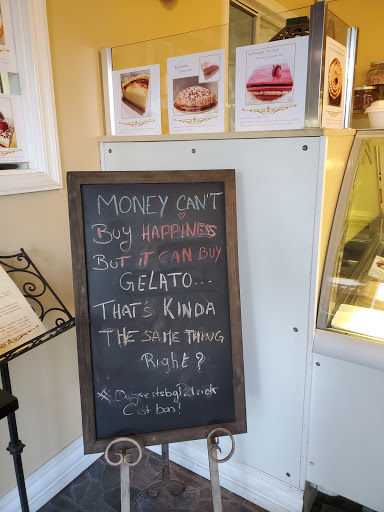 MONEY CAN'T
BUY HAPPINESS
BUT IT CAN BUY
GELATO...
THAT'S KINDA
THE SAME THING
RigHt?
C'est bon!